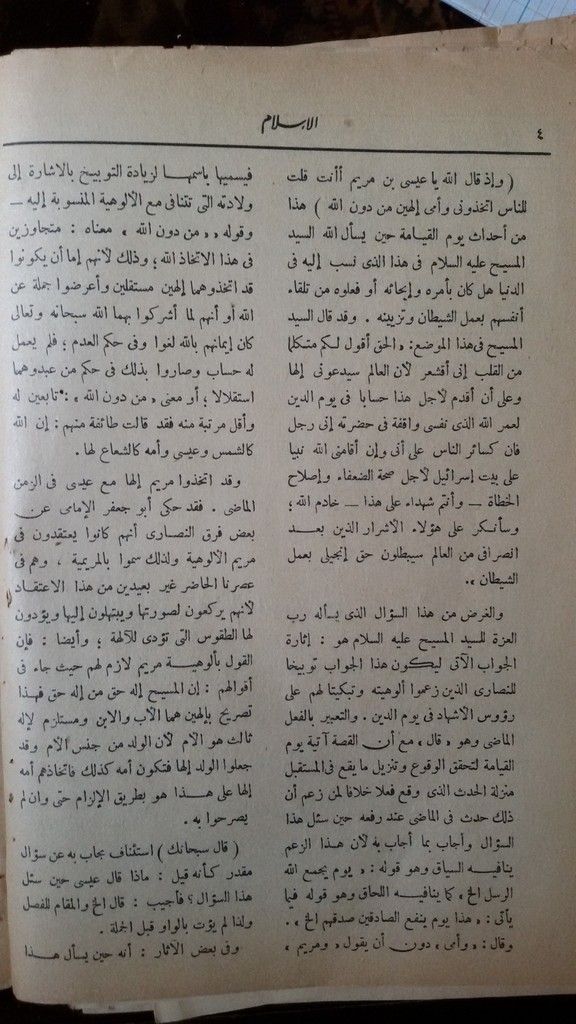 الإسلام
٤
( وإذ قال الله يا عيسى بن مريم أأنت قلت
للناس اتخذونى وأمى إلهين من دون الله ) هذا
من أحداث يوم القيامة حين يسأل الله السيد
المسيح عليه السلام فى هذا الذى نسب إليه فى
الدنيا هل كان بأمره وإيحائه أو فعلوه من تلقاء
أنفسهم بعمل الشيطان وتزيينه . وقد قال السيد
المسيح فى هذا الموضع : « الحق أقول لكم متكلما
من القلب إنى أقشعر لأن العالم سيدعونى إلها
وعلى أن أقدم لأجل هذا حسابا فى يوم الدين
لعمر الله الذى نفسى واقفة فى حضرته إنى رجل
فان كسائر الناس على أنى وإن أقامنى الله نبيا
على بيت إسرائيل لأجل صحة الضعفاء وإصلاح
الخطاة ــ وأنتم شهداء على هذا ــ خادم الله ؛
وسأنكر على هؤلاء الأشرار الذين بعد
انصرافى من العالم سيبطلون حق إنجيلى بعمل
الشيطان » .
والغرض من هذا السؤال الذى يسأله رب
العزة للسيد المسيح عليه السلام هو : إثارة
الجواب الآتى ليكون هذا الجواب توبيخا
للنصارى الذين زعموا ألوهيته وتبكيتا لهم على
رؤوس الأشهاد فى يوم الدين . والتعبير بالفعل
الماضى وهو « قال » مع أن القصة آتية يوم
القيامة لتحقق الوقوع وتنزيل ما يقع فى المستقبل
منزلة الحدث الذى وقع فعلا خلافا لمن زعم أن
ذلك حدث فى الماضى عند رفعه حين سئل هذا
السؤال وأجاب بما أجاب به لأن هذا الزعم
ينافيه السياق وهو قوله : « يوم يجمع الله
الرسل الخ » كما ينافيه اللحاق وهو قوله فيما
يأتى : « هذا يوم ينفع الصادقين صدقهم الخ » .
وقال : « وأمى » دون أن يقول « ومريم »
فيسميها باسمها لزيادة التوبيخ بالاشارة إلى
ولادته التى تتنافى مع الألوهية المنسوبة إليه ــ
وقوله « من دون الله » معناه : متجاوزين
فى هذا الاتخاذ الله ؛ وذلك لأنهم إما أن يكونوا
قد اتخذوهما إلهين مستقلين وأعرضوا جملة عن
الله أو أنهم لما أشركوا بهما الله سبحانه وتعالى
كان إيمانهم بالله لغوا وفى حكم العدم ؛ فلم يعمل
له حساب وصاروا بذلك فى حكم من عبدوهما
استقلالا ؛ أو معنى « من دون الله » : تابعين له
وأقل مرتبة منه فقد قالت طائفة منهم : إن الله
كالشمس وعيسى وأمه كالشعاع لها .
وقد اتخذوا مريم إلها مع عيسى فى الزمن
الماضى . فقد حكى أبو جعفر الإمامى عن
بعض فرق النصارى أنهم كانوا يعتقدون فى
مريم الألوهية ولذلك سموا بالمريمية ، وهم فى
عصرنا الحاضر غير بعيدين من هذا الاعتقاد
لأنهم يركعون لصورتها ويبتهلون إليها ويؤدون
لها الطقوس التى تؤدى للآلهة ، وأيضا : فإن
القول بألوهية مريم لازم لهم حيث جاء فى
أقوالهم : إن المسيح إله حق من إله حق فهذا
تصريح بإلهين هما الأب والابن ومستلزم لإله
ثالث هو الأم لأن الولد من جنس الأم وقد
جعلوا الولد إلها فتكون أمه كذلك فاتخاذهم أمه
إلها على هذا هو بطريق الإلزام حتى وان لم
يصرحوا به .
( قال سبحانك ) استئناف يجاب به عن سؤال
مقدر كأنه قيل : ماذا قال عيسى حين سئل
هذا السؤال ؟ فأجيب : قال الخ والمقام للفصل
ولذا لم يؤت بالواو قبل الجملة .
وفى بعض الآثار : أنه حين يسأل هذا